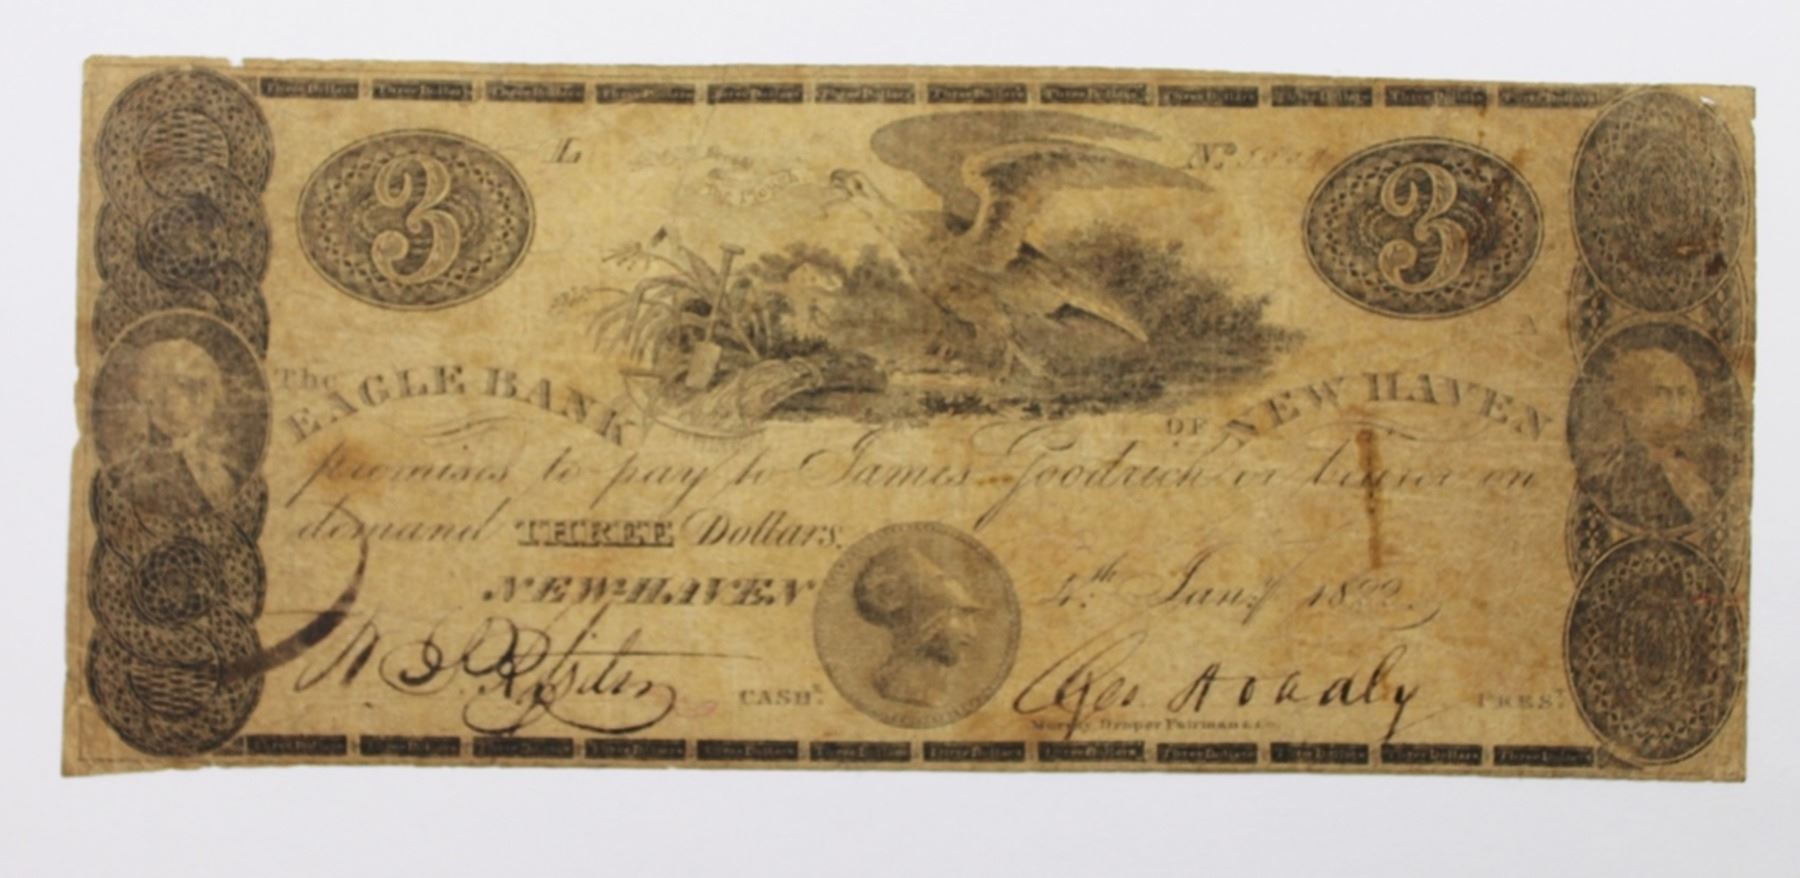 Three Dollars Three Dollars Three Dollars Three Dollars Three Dollars Three Dollars Three Dollars Three Dollars Three Dollars Three Dollars Three Dollars Three Dollars
L No.
3 3
A
The EAGLE BANK OF NEW HAVEN
promises to pay to James Goodrich or bearer on
demand THREE Dollars.
NEW-HAVEN 4th Jany. 1822.
CASHR. Geo Hoadly PREST.
Murray Draper Fairman & Co.
Three Dollars Three Dollars Three Dollars Three Dollars Three Dollars Three Dollars Three Dollars Three Dollars Three Dollars Three Dollars Three Dollars Three Dollars